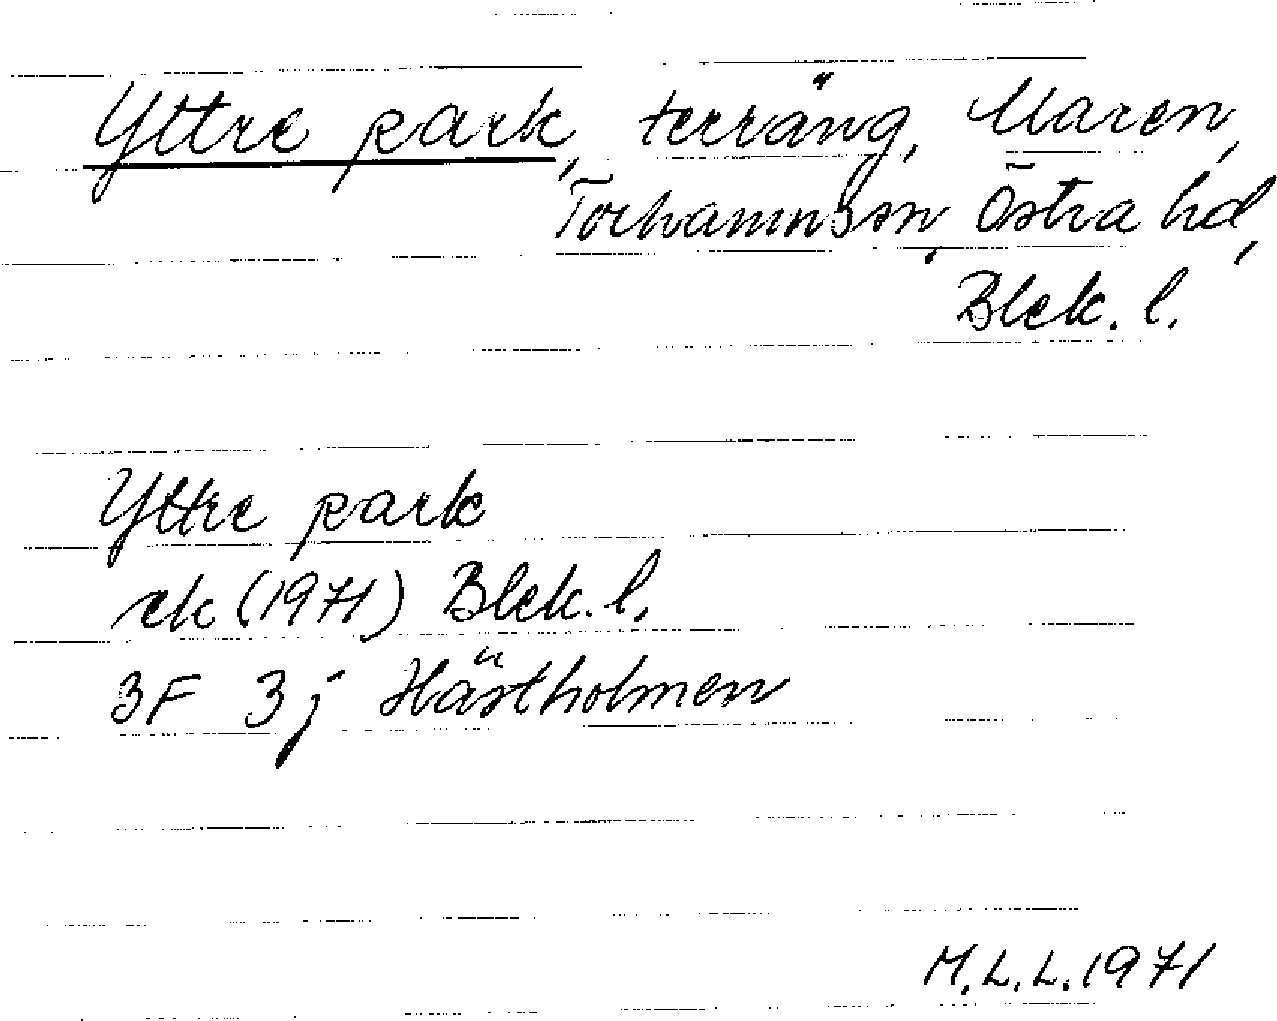 Yttre park, terräng, Maren,
Torhamns sn, Östra hd,
Blek. l.
Yttre park
ek (1971) Blek. l.
3F 3j Hästholmen
M.L.L. 1971